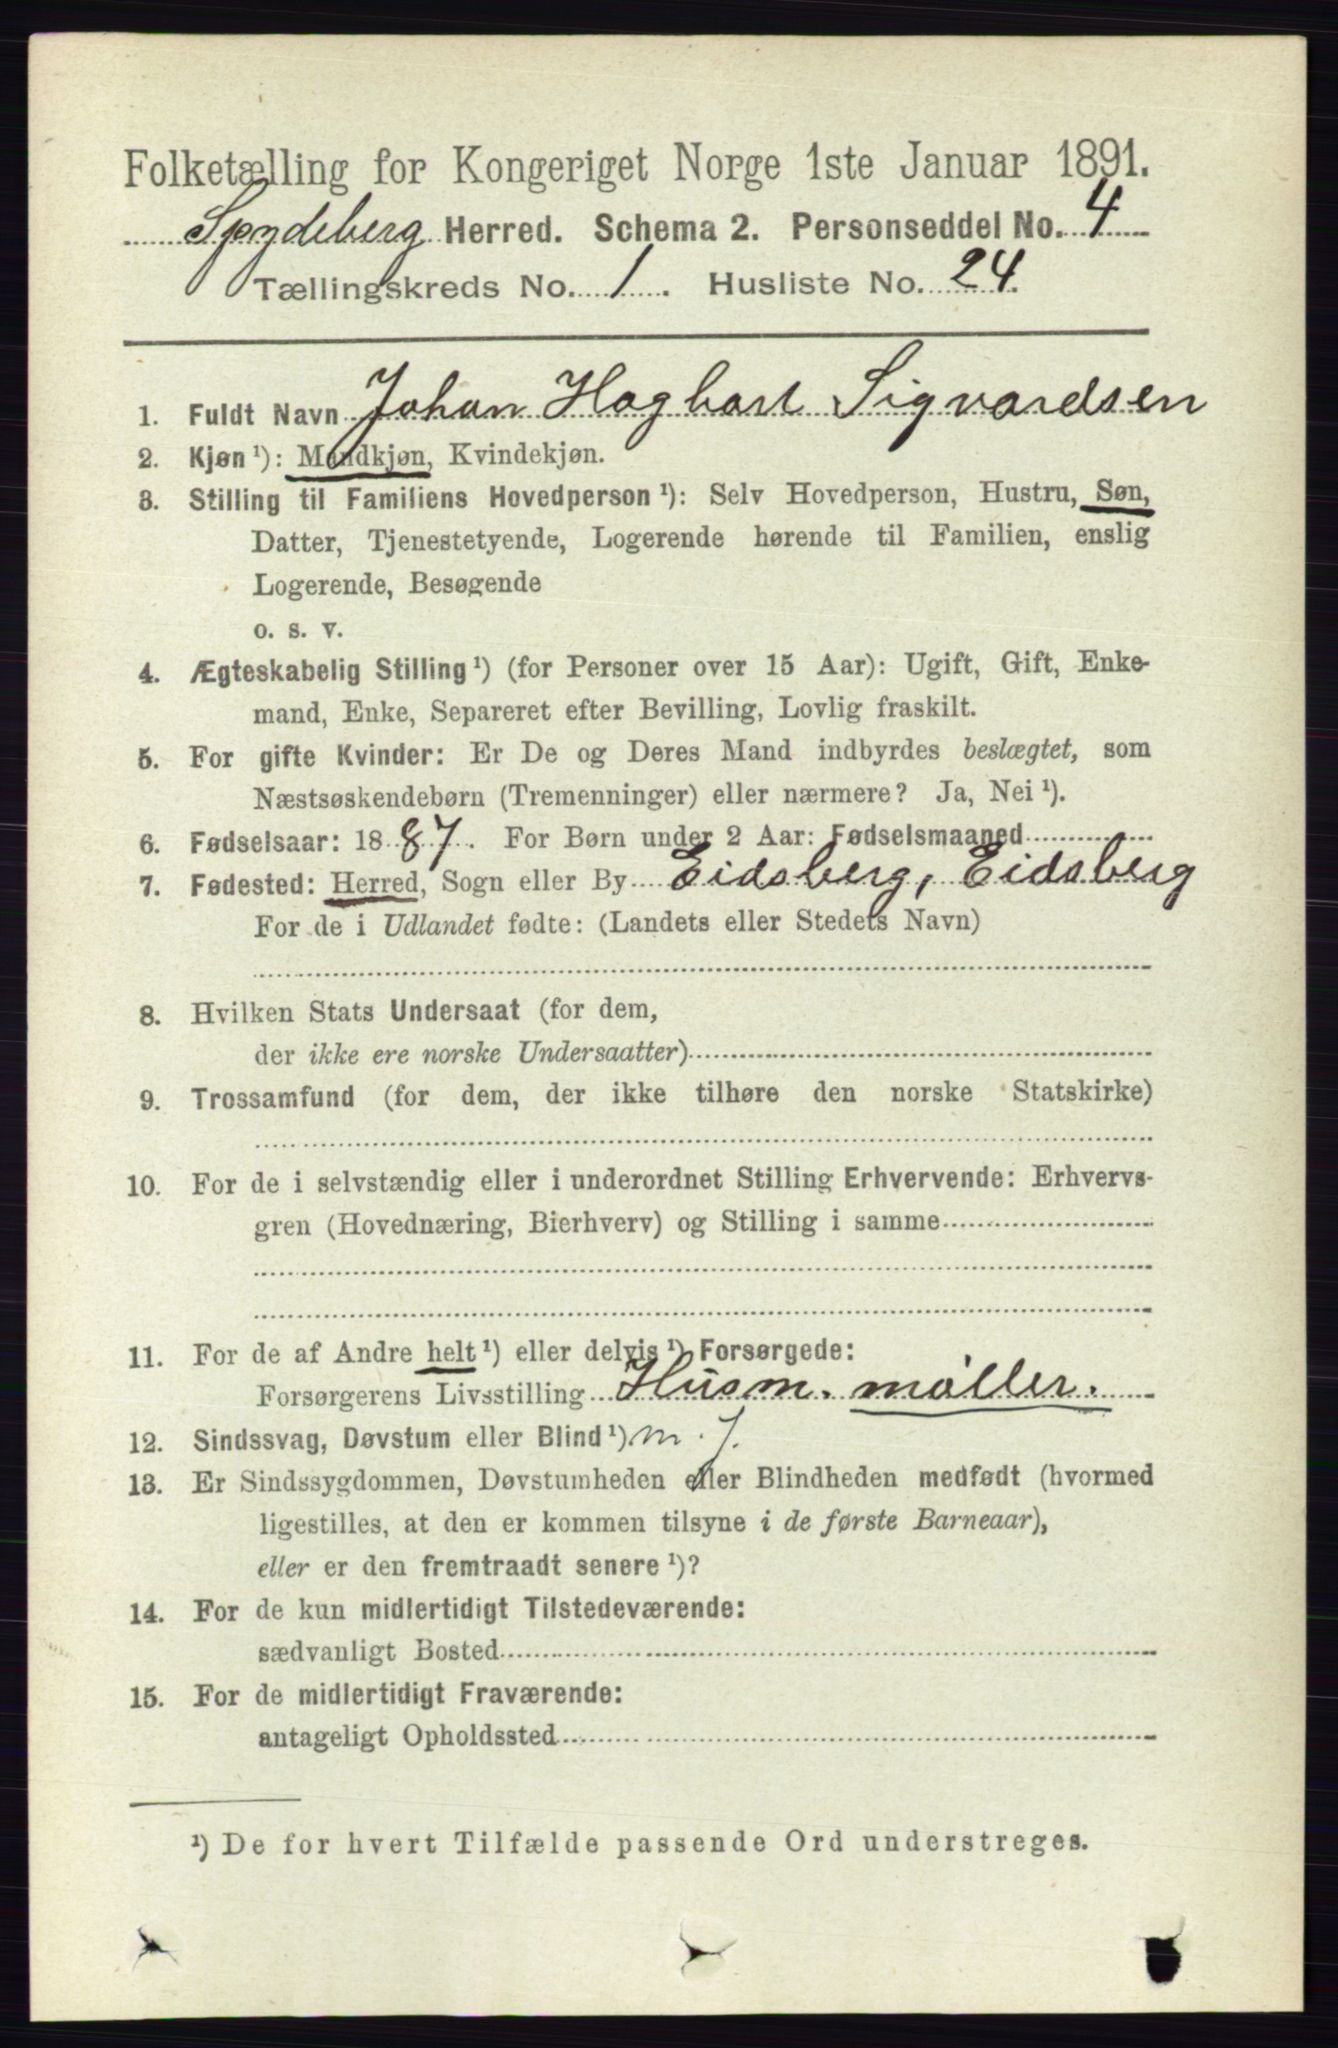 Folketælling for Kongeriget Norge 1ste Januar 1891.
Spydeberg Herred. Schema 2. Personseddel No. 4
Tællingskreds No. 1. Husliste No. 24.
1. Fuldt Navn Johan Hagbart Sigvardsen
2. Kjøn ¹): Mandkjøn, Kvindekjøn.
3. Stilling til Familiens Hovedperson ¹): Selv Hovedperson, Hustru, Søn,
Datter, Tjenestetyende, Logerende hørende til Familien, enslig
Logerende, Besøgende
o. s. v.
4. Ægteskabelig Stilling ¹) (for Personer over 15 Aar): Ugift, Gift, Enke-
mand, Enke, Separeret efter Bevilling, Lovlig fraskilt.
5. For gifte Kvinder: Er De og Deres Mand indbyrdes beslægtet, som
Næstsøskendebørn (Tremenninger) eller nærmere? Ja, Nei ¹).
6. Fødselsaar: 1887. For Børn under 2 Aar: Fødselsmaaned
7. Fødested: Herred, Sogn eller By Eidsberg, Eidsberg
For de i Udlandet fødte: (Landets eller Stedets Navn)
8. Hvilken Stats Undersaat (for dem,
der ikke ere norske Undersaatter)
9. Trossamfund (for dem, der ikke tilhøre den norske Statskirke)
10. For de i selvstændig eller i underordnet Stilling Erhvervende: Erhvervs-
gren (Hovednæring, Bierhverv) og Stilling i samme
11. For de af Andre helt ¹) eller delvis ¹) Forsørgede:
Forsørgerens Livsstilling Husm. møller.
12. Sindssvag, Døvstum eller Blind ¹).
13. Er Sindssygdommen, Døvstumheden eller Blindheden medfødt (hvormed
ligestilles, at den er kommen tilsyne i de første Barneaar),
eller er den fremtraadt senere ¹)?
14. For de kun midlertidigt Tilstedeværende:
sædvanligt Bosted
15. For de midlertidigt Fraværende:
antageligt Opholdssted
¹) De for hvert Tilfælde passende Ord understreges.